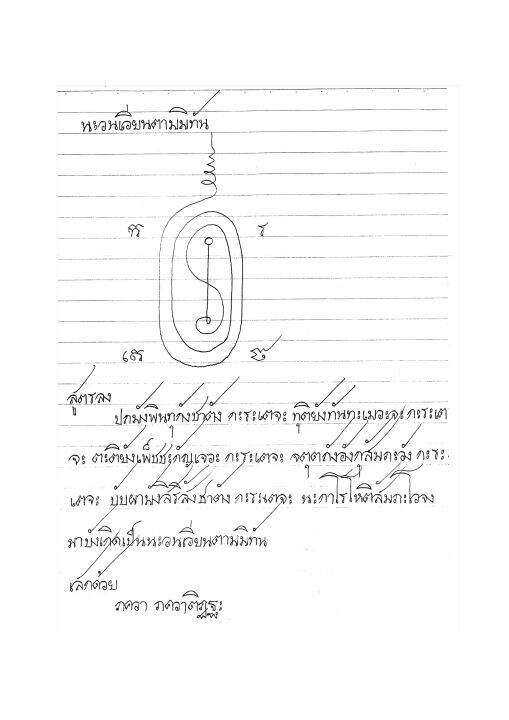 นะวนเวียนตามมิทัน
ร
สูตรลง
ปถมังพินทุกังชาตัง กะระเตจะ ทุติยังทันทะเมวะจะ กะระเต
จะ ตะติยังเพ็ชชะกัญเจวะ กะระเตจะ จตุตถังอังกุสัมภะวัง กะระ
เตจะ กะระเตจะ นะกาโรโหติสัมภะโวจง
มาบังเกิดเป็นนะวนเวียนตามมิทัน
เสกด้วย
ภควา ภควาติฏฐะ